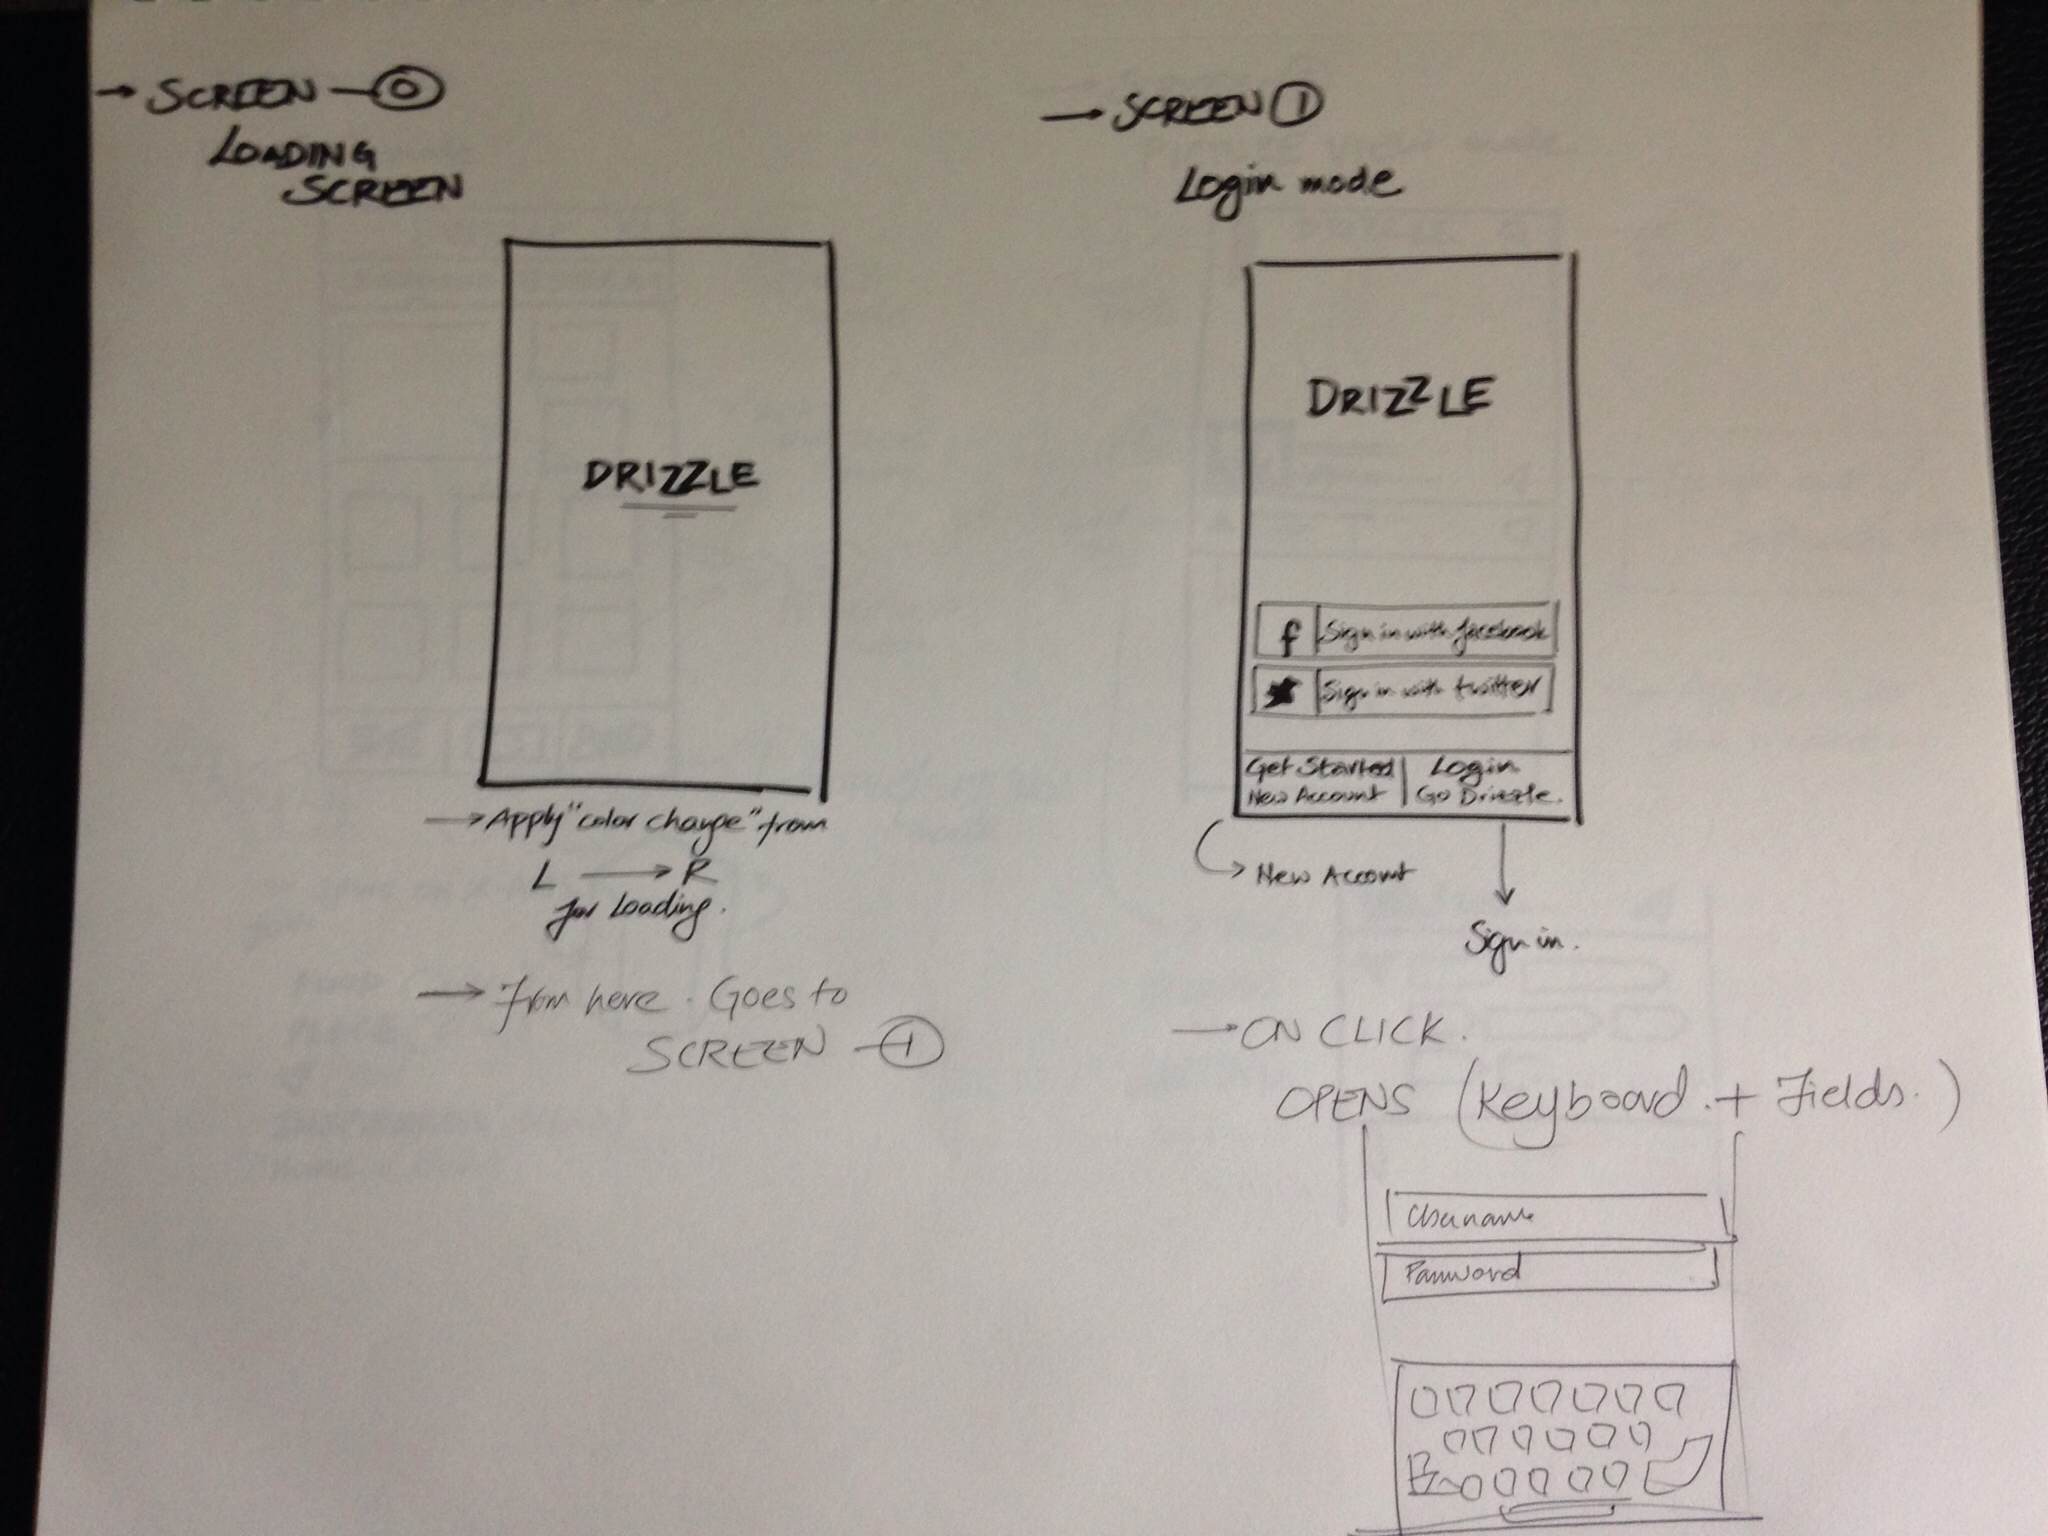 → SCREEN - 0
LOADING
SCREEN
DRIZZLE
→ Apply "color change" from
L → R
for loading.
→ From here. Goes to
SCREEN - 1
→ SCREEN 1
Login mode
DRIZZLE
f Sign in with facebook
Sign in with twitter
Get Started
New Account
Login
Go Drizzle.
New Account
Sign in.
→ ON CLICK.
OPENS (Keyboard + Fields.)
Username
Password